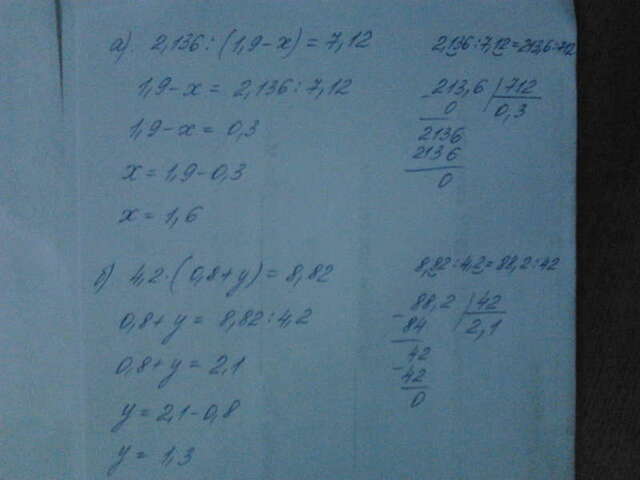 а). 2,136:(1,9-x)=7,12
1,9-x = 2,136:7,12
1,9-x = 0,3
x = 1,9-0,3
x = 1,6
2,136:7,12=213,6:712
213,6 | 712
0 0,3
2136
2136
0
б) 4,2·(0,8+y)=8,82
0,8+y = 8,82:4,2
0,8+y = 2,1
y = 2,1-0,8
y = 1,3
8,82:4,2=88,2:42
- 88,2 | 42
84 2,1
- 42
42
0